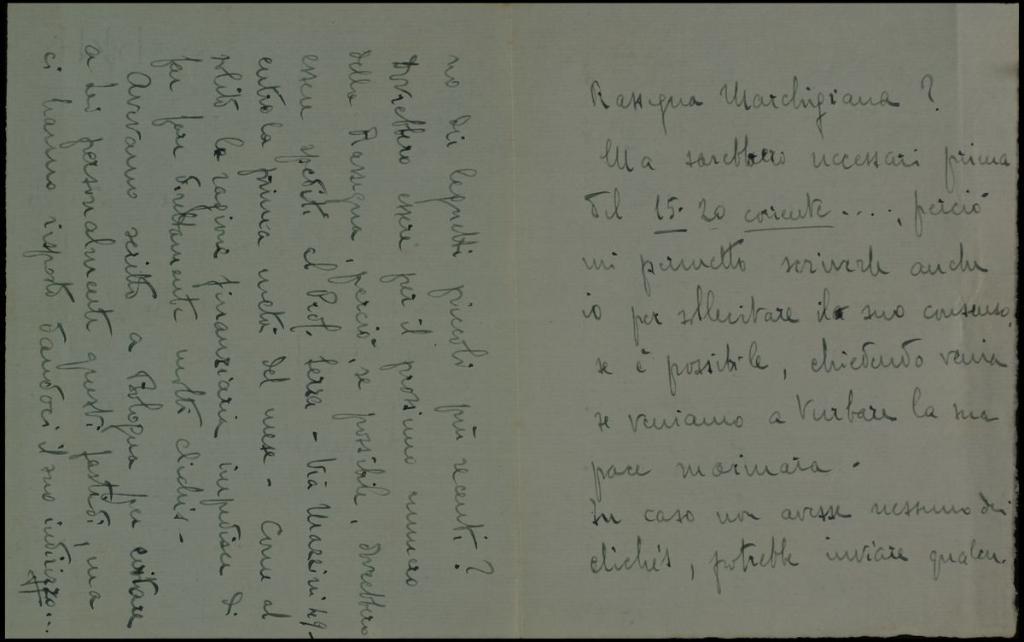 Rassegna Marchigiana?
Ma sarebbero necessari prima
del 15-20 corrente...., perciò
mi permetto scriverle anche
io per sollecitare il suo consenso,
se è possibile, chiedendo venia
se veniamo a turbare la sua
pace marinara.
In caso non avesse nessuno dei
clichés, potrebbe inviare qualcu-
no di legnetti piccoli più recenti?
Dovrebbero essere per il prossimo numero
della Rassegna, perciò, se possibile, dovrebbero
essere spediti al Prof. Serra - Via
entro la prima metà del mese - Come al
solito la ragione finanziaria impedisce di
far fare direttamente molti clichés -
Avevamo scritto a Bologna per evitare
a Lei personalmente questi fastidi, ma
ci hanno risposto dandoci il suo indirizzo...